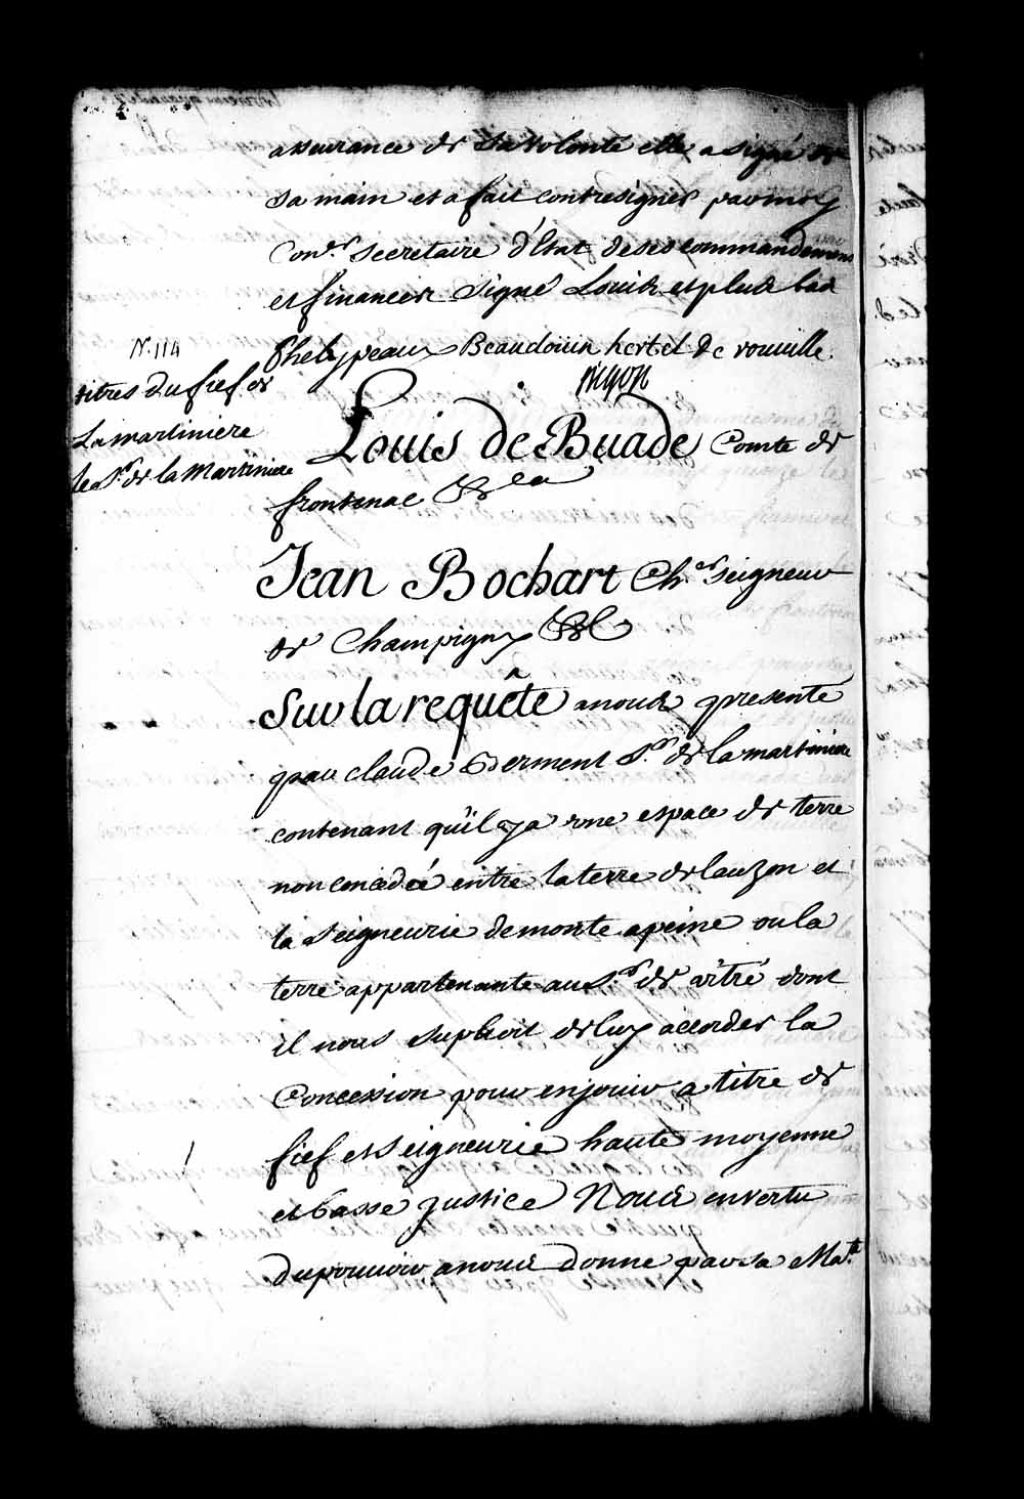 assurance de sa volonté elle a signé de
sa main et a fait contresigner par moy
Con.er secretaire d'Estat de ses commandemens
et finances signé Louis et plus bas
Phelypeaux Beaudoüin hertel de rouville.
pigon
N.º 114
titres du fief de
La martiniere
le S.r de la Martiniere
Louis de Buade Comte de
frontenac &ca
Jean Bochart Ch.er seigneur
de Champigny &c
Sur la requête a nous presente
par claude Berment S.r de la martiniere
contenant qu'il y a une espace de terre
non concedeé entre la terre de lauzon et
la seigneurie de monte a peine ou la
terre appartenante au S.r de vitré dont
il nous suplioit de luy accorder la
Concession pour en jouir a titre de
fief et seigneurie haute moyenne
et basse justice Nous en vertu
du pouvoir a nous donne par sa Ma.té